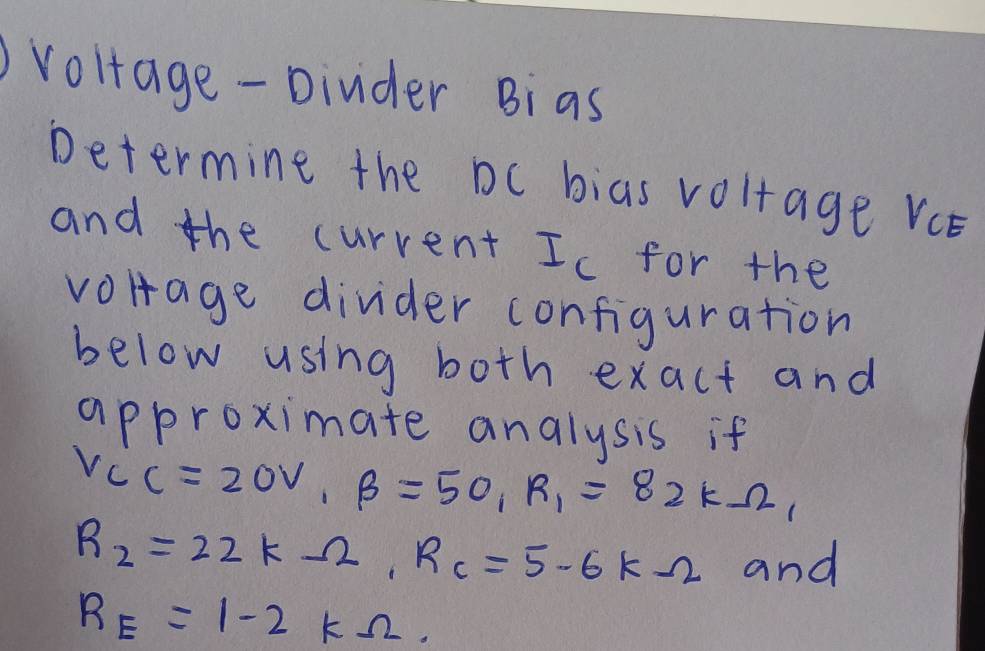 ) Voltage - Divider Bias
Determine the DC bias voltage VCE
and the current IC for the
voltage divider configuration
below using both exact and
approximate analysis if
VCC = 20V, β = 50, R1 = 82kΩ,
R2 = 22kΩ, RC = 5-6kΩ and
RE = 1-2 kΩ.